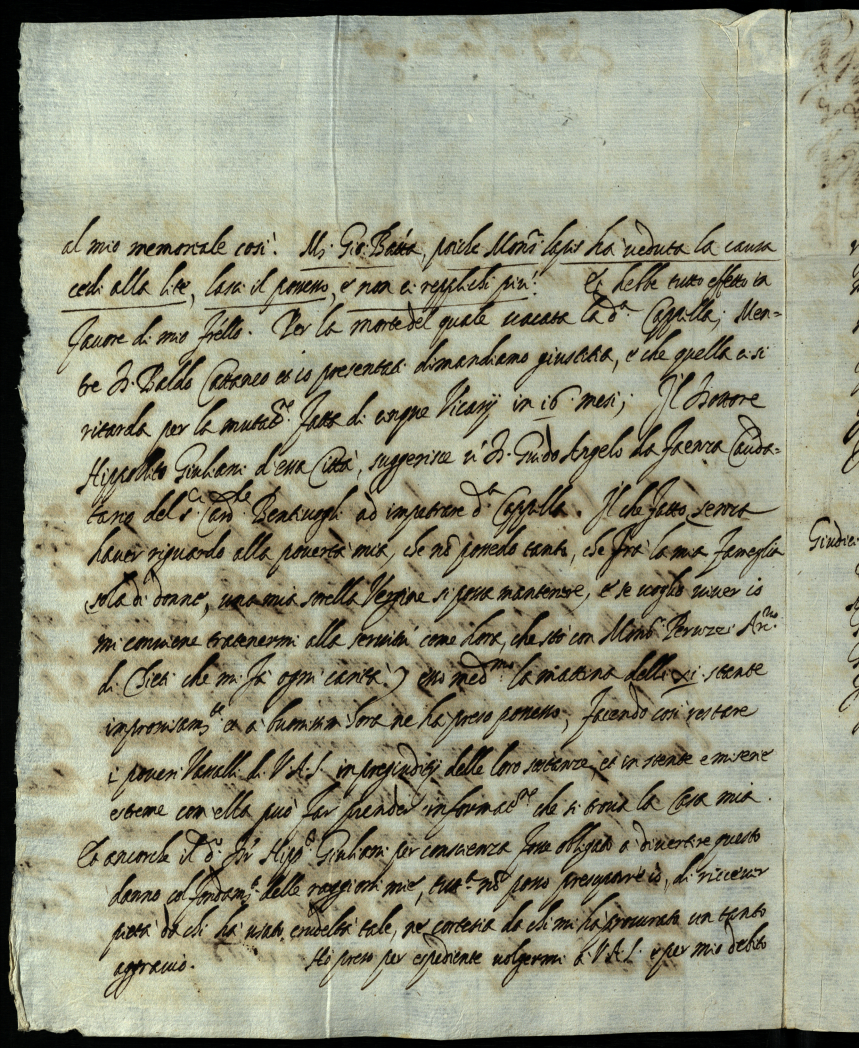 al mio memoriale così. Mr. Gio: Batta, poiche Mons.r ha veduta la causa
cedi alla lite, lassi il possesso, e non ci repplichi più. Et hebbe tutto effetto in
favore di mio frello. Per la morte del quale vacata la d.a Cappella; Men=
tre D. Baldo Cattaneo et io presentati dimandiamo giustitia, e che quella ci si
ritarda per la mutat.ne fatta di cinque Vicarij in 16 mesi; Il Dottore
Hippolito Giuliani d'essa Città, suggerisce à D. Guido Angelo da Faenza Cauda=
tario del s.r Card.le Bentivogli ad impetrare d.a Cappella. Il che fatto senza
haver riguardo alla povertà mia, che nõ possedo tanto, che frà la mia fameglia
sola di donne, una mia sorella Vergine si possa mantenere, e se voglio viver io
mi conviene tratenermi alla servitù come hora, che stò con Mons.r Peruzzi Ar.vo
di Chieti che mi fà ogni carità) esso med.mo la mattina delli xi stante
improvisam.te et à bonissim hora ne ha preso possesso, facendo così restare
i poveri Vassalli di V.A.S. in pregiuditij delle loro sostanze, et in stente e miserie
estreme con ella può far prender informat.ne che si trova la Casa mia.
Et ancorche il d.o Sr Hipp.o Giuliani per conscienza fosse obligato à divertire questo
danno col fondam.to delle raggioni mie, tutt.a nõ posso presumere io, di riccever
pietà da chi ha usato crudeltà tale, ne cortesia da chi mi ha procurato un tanto
aggravio. Hò preso per espediente volgermi à V.A.S. e per mio debito
Giudici